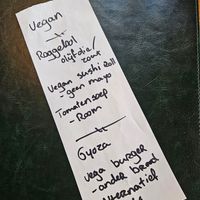 Vegan
Roggebol
olijfolie/
zout
Vegan sushi roll
- geen mayo
Tomatensoep
- Room
Gyoza
vega burger
- ander brood
alternatief